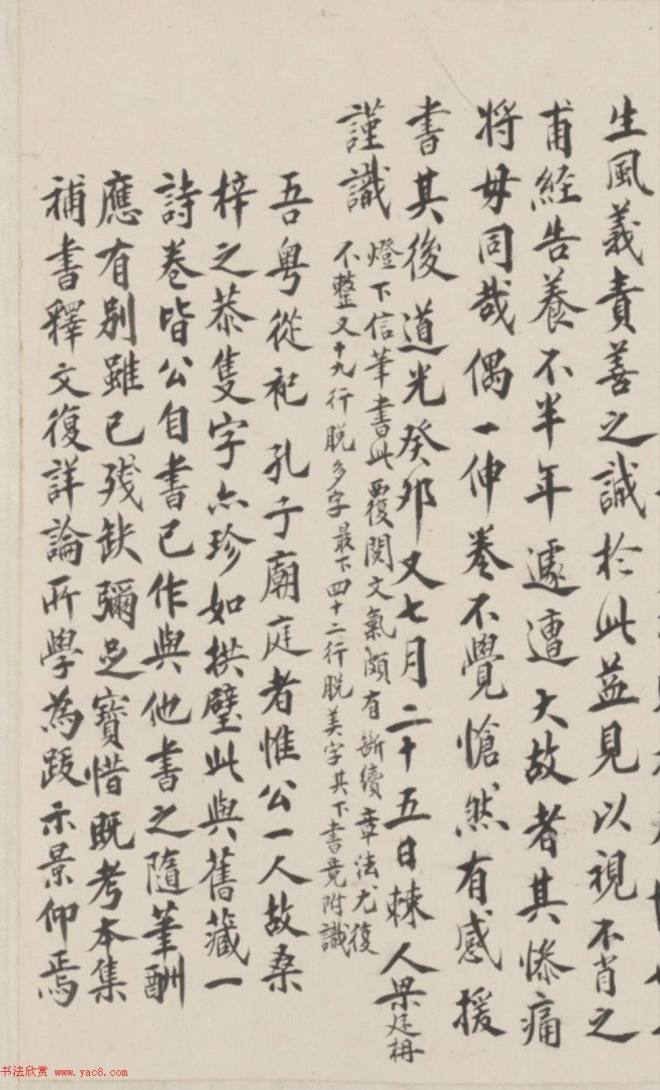 生風義責善之誠於此益見以視不肖之
甫經告養不半年遽遭大故者其慘痛
將毋同哉偶一伸卷不覺愴然有感援
書其後道光癸卯又七月二十五日棘人梁廷枏
謹識
燈下信筆書此覆閱文氣頗有斷續章法尤復
不整又十九行脫多字最下四十二行脫美字其下書竟附識
吾粵從祀 孔子廟庭者惟公一人故桑
梓之恭隻字亦珍如拱璧此與舊藏一
詩卷皆公自書已作與他書之隨筆酬
應有别雖已殘缺彌足寶惜既考本集
補書釋文復詳論所學為跋示景仰焉
书法欣赏 www.yac8.com